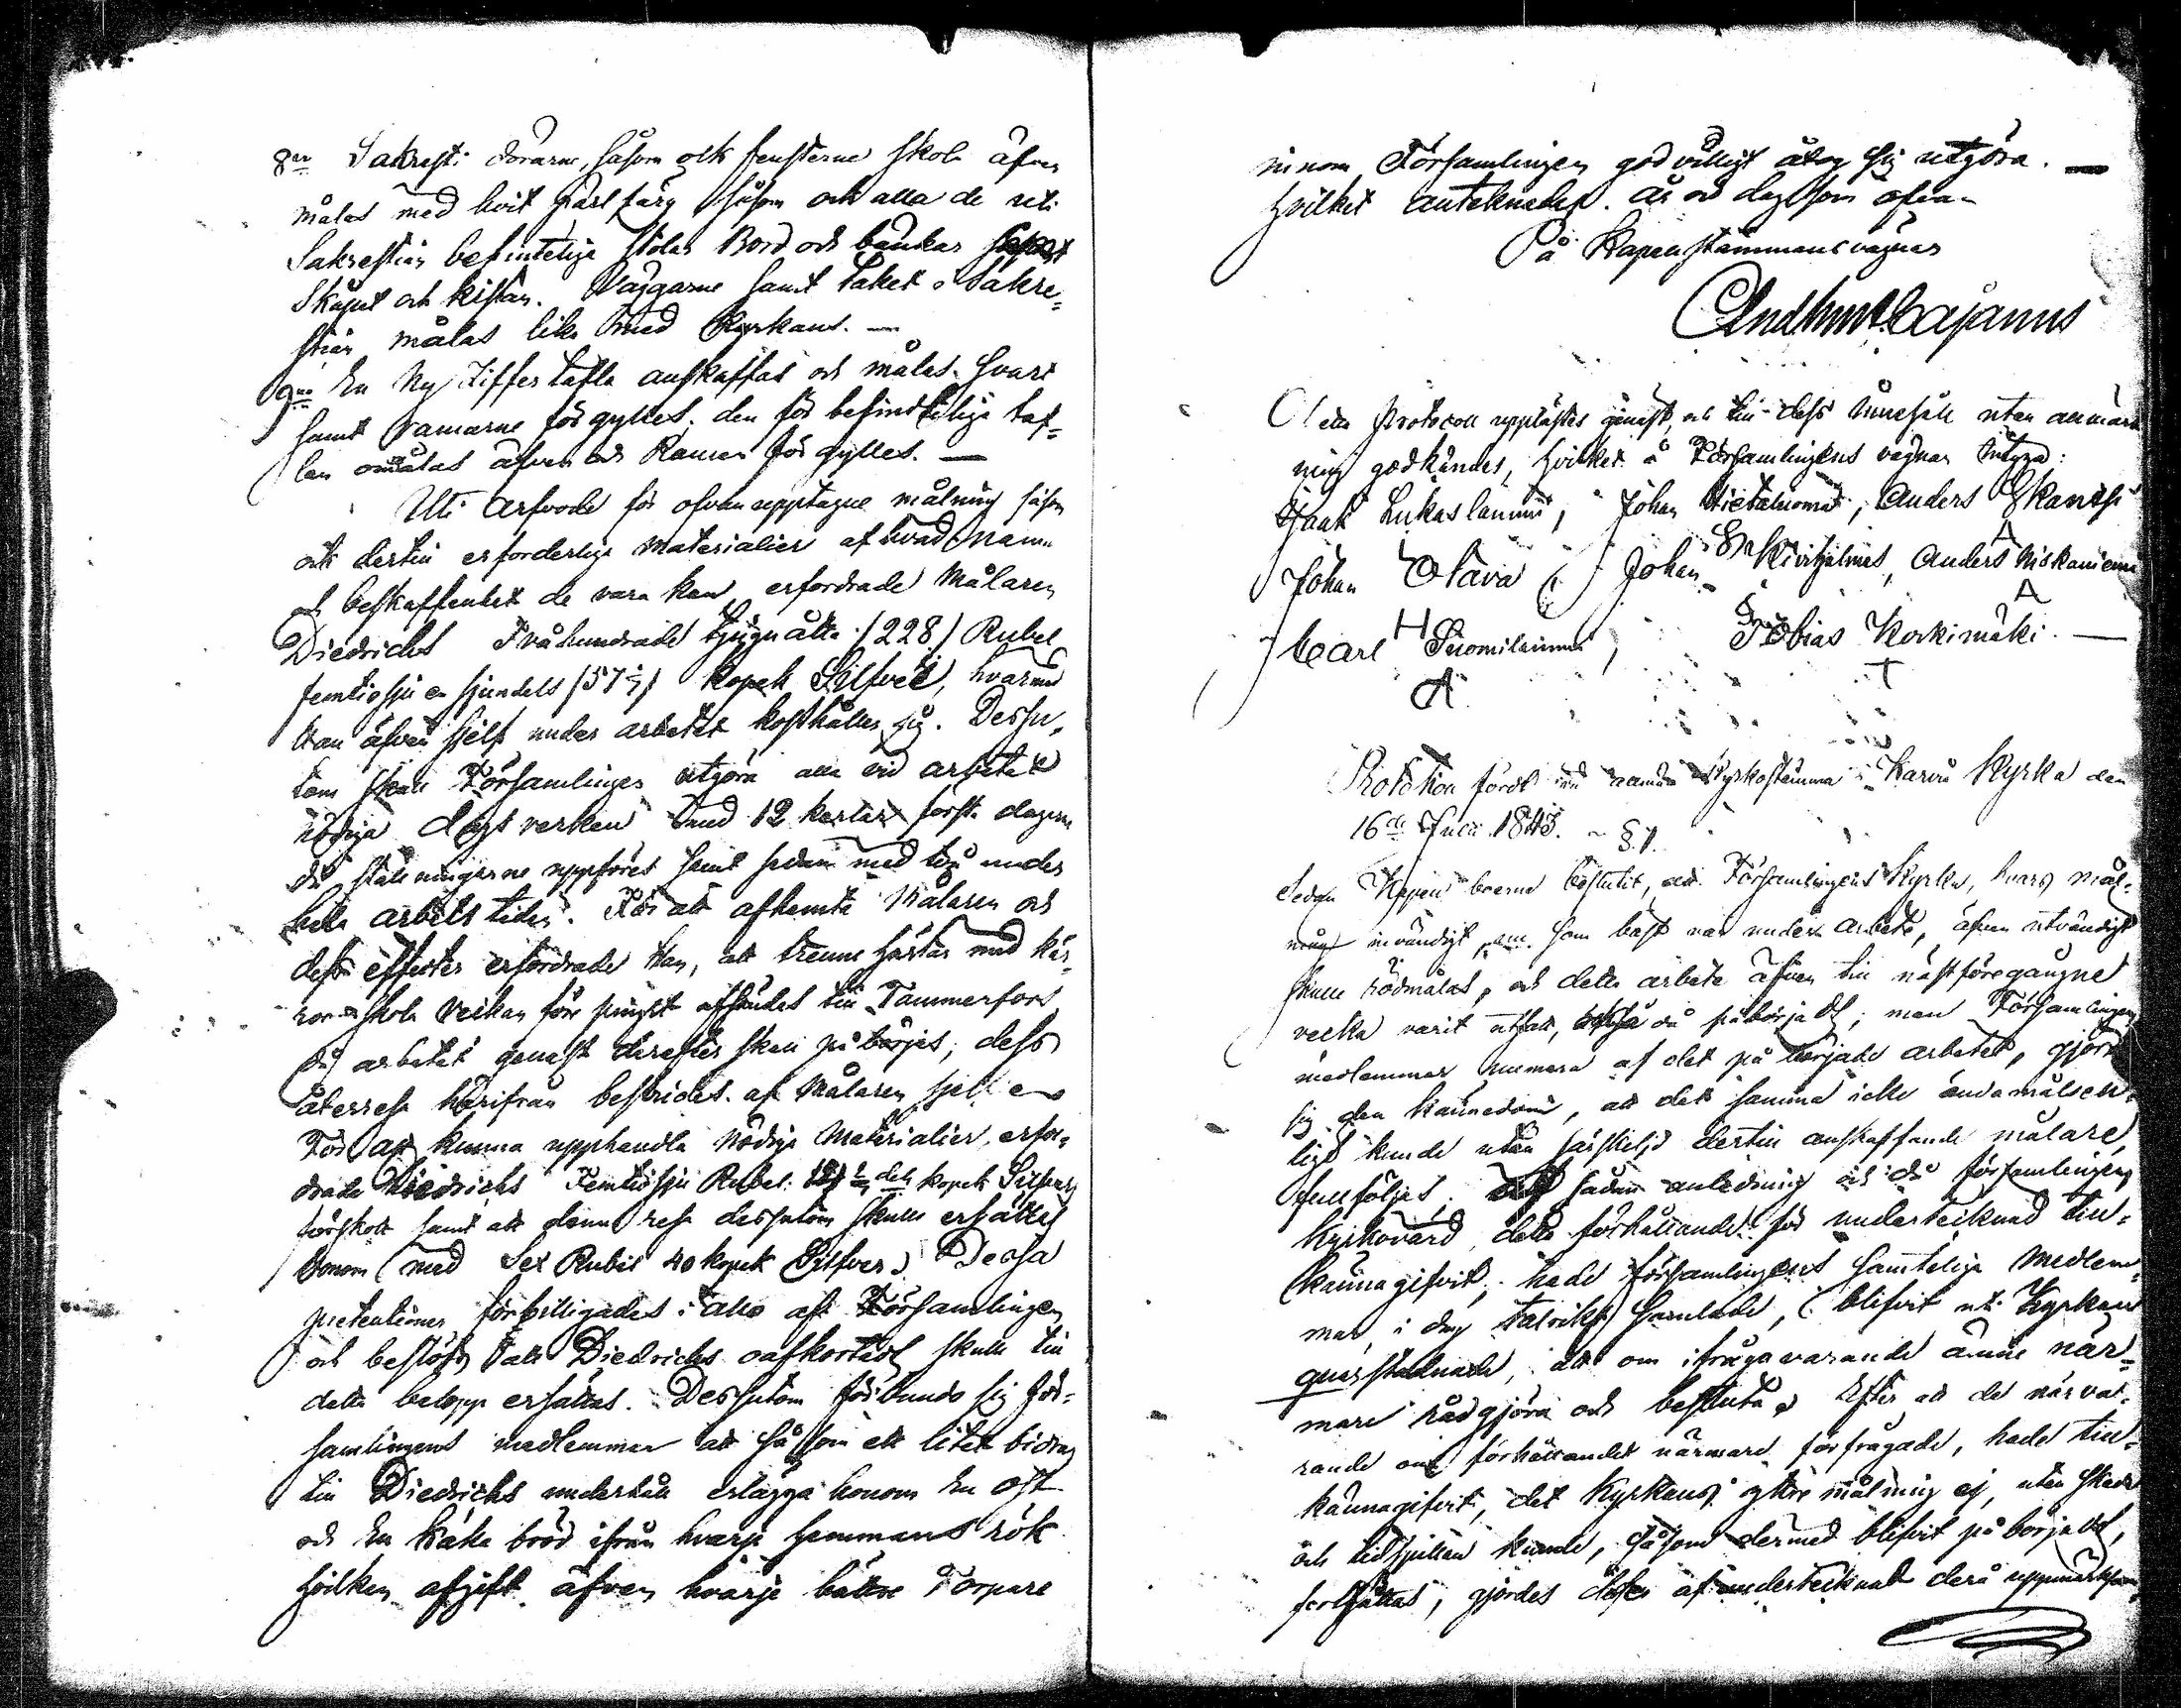 8:o Sakresti dörarne, såsom ock fensterne skola äfven
målas med hvit pärlfärg såsom ock alla de uti
Sakrestian befintelige stolar Bord och bänkar
Skåpet och kistan. Väggarne samt taket i Sakre=
stian målas lika med Kyrkans. —
9:o En Ny Ziffertafla anskaffas och målas svart
samt ramarne förgylles. den förbefindtelige taf=
lan ommålas äfven och Ramen förgylles. —
Uti Arfvode för ofvanupptagne målning såsom
ock dertill erforderlige materialier af hvad namn
och beskaffenhet de vara kan, erfordrade Målaren
Diedrichs Tvåhundrade tjuguåtta (228) Rubel
femtiosju en sjundels (57 1/7) Kopek Silfver, hvarmed
han äfven sjelf under arbetet kosthåller sig. Dessu=
tom skall Församlingen utgöra alla vid arbetet
nödiga dagsverken med 12 karlar första dagarne
då ställningarne uppföres samt sedan med två under
hela arbetstiden. För att afhemta Målaren och
dess effecter erfordrade han, att trenne hästar med kär=
ror skola veckan före pingst afsändas till Tammerfors
då arbetet genast derefter skall påbörjas; dess
återresa härifrån bestrides af Målaren sjelf.
För att kunna upphandla nödiga Materialier, erfor=
drade Diedrichs Femtiosju Rubel kopek Silfver
förskott samt att denna resa dessutom skulle ersättas
honom med Sex Rubel 40 kopek Silfver. Dessa
pretentioner förbilligades i allo af Församlingen
och beslöts att Diedrichs oafkortadt skulle till
detta belopp ersättas. Dessutom förbundo sig För=
samlingens medlemmar att såsom ett litet bidrag
till Diedrichs underhåll erlägga honom En Ost
och En Kaka bröd ifrån hvarje hemmans rök
hvilken afgift äfven hvarje bättre Torpare
innom Församlingen godvilligt åtog sig utgöra. —
Hvilket antecknades. År och dag som ofvan
På Kapellstämmans vägnar
Cajanus
Detta Protocoll upplästes genast, och till dess innehåll utan anmärk
ning godkändes, hvilket å Församlingens vägnar intyga:
Isaak Lukaslammi, Johan Hietaluoma, Anders Skantsi
Johan Otava Johan Kivihjelmes, Anders Niskaniemi
A
Carl Suomilammi, Tobias Korkimäki. —
Protokoll fördt vid allmän Kyrkostämma i Karvia Kyrka den
16de Julii 1843. — § 1.
Sedan Kapellboerne beslutit, att Församlingens Kyrka, hvars mål=
ning invändigt, som bäst var under arbete, äfven utvändigt
skulle rödmålas, och detta arbete äfven till nästföregångne
vecka varit utsatt, då påbörjadt; men Församlingens
medlemmar numera af det påbörjade arbetet, gjort
sig den kännedom, att det samma icke ändamålsen=
ligt kunde utan särskild dertill anskaffande målare,
fullföljas; sådan anledning och då församlingens
Kyrkovärd detta förhållande för undertecknad till=
kännagifvit, hade församlingens samtelige Medlem=
mar i dag talrikt samlade, blifvit uti Kyrkan
quarstadnade, att om ifrågavarande ämne när=
mare rådgjöra och besluta. Efter att de närva=
rande om förhållandet närmare förfrågade, hade till=
kännagifvit, det Kyrkans yttre målning ej, utan skada
och tidspillan kunde, såsom dermed blifvit påbörjadt,
fortsättas, gjordes desse af undertecknad derå uppmärksam